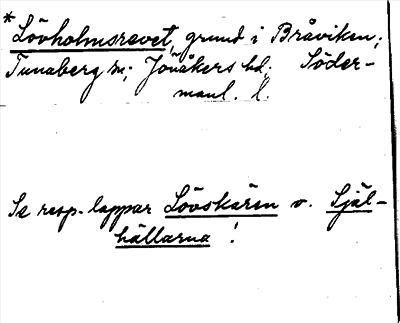 * Lövholmsrevet, grund i Bråviken;
Tunaberg sn; Jönåkers hd; Söder-
manl. l.
Se resp. lappar Lövskären o. Själ-
hällarna !